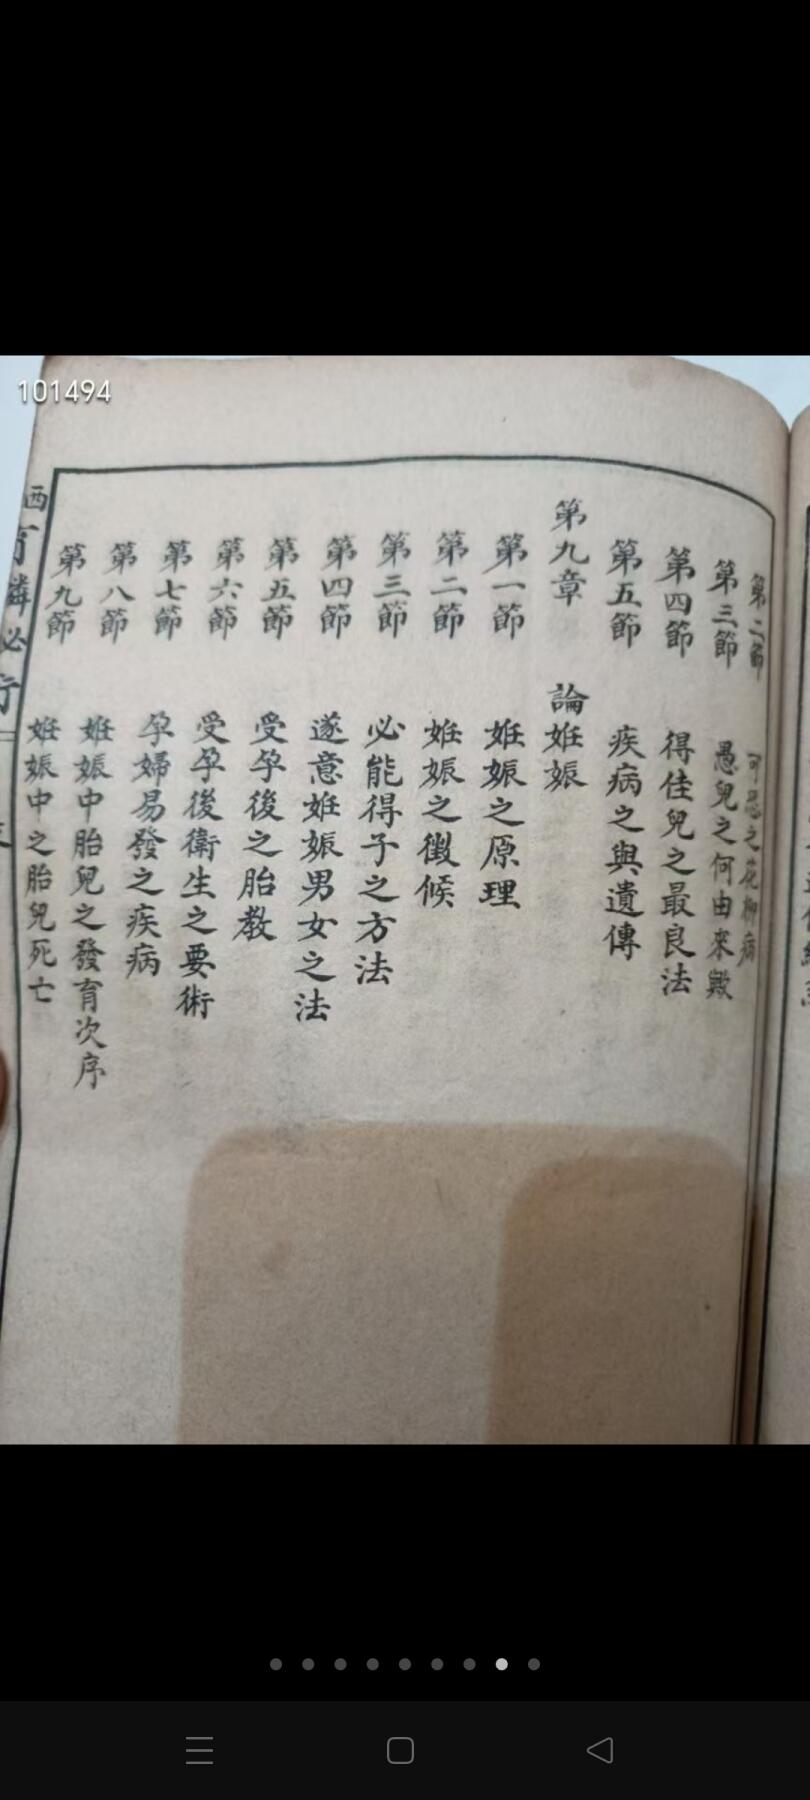 101494
第二節　可恐之花柳病
第三節　愚兒之何由來歟
第四節　得佳兒之最良法
第五節　疾病之與遺傳
第九章　論姙娠
第一節　姙娠之原理
第二節　姙娠之徵候
第三節　必能得子之方法
第四節　遂意姙娠男女之法
第五節　受孕後之胎教
第六節　受孕後衛生之要術
第七節　孕婦易發之疾病
第八節　姙娠中胎兒之發育次序
第九節　姙娠中之胎兒死亡